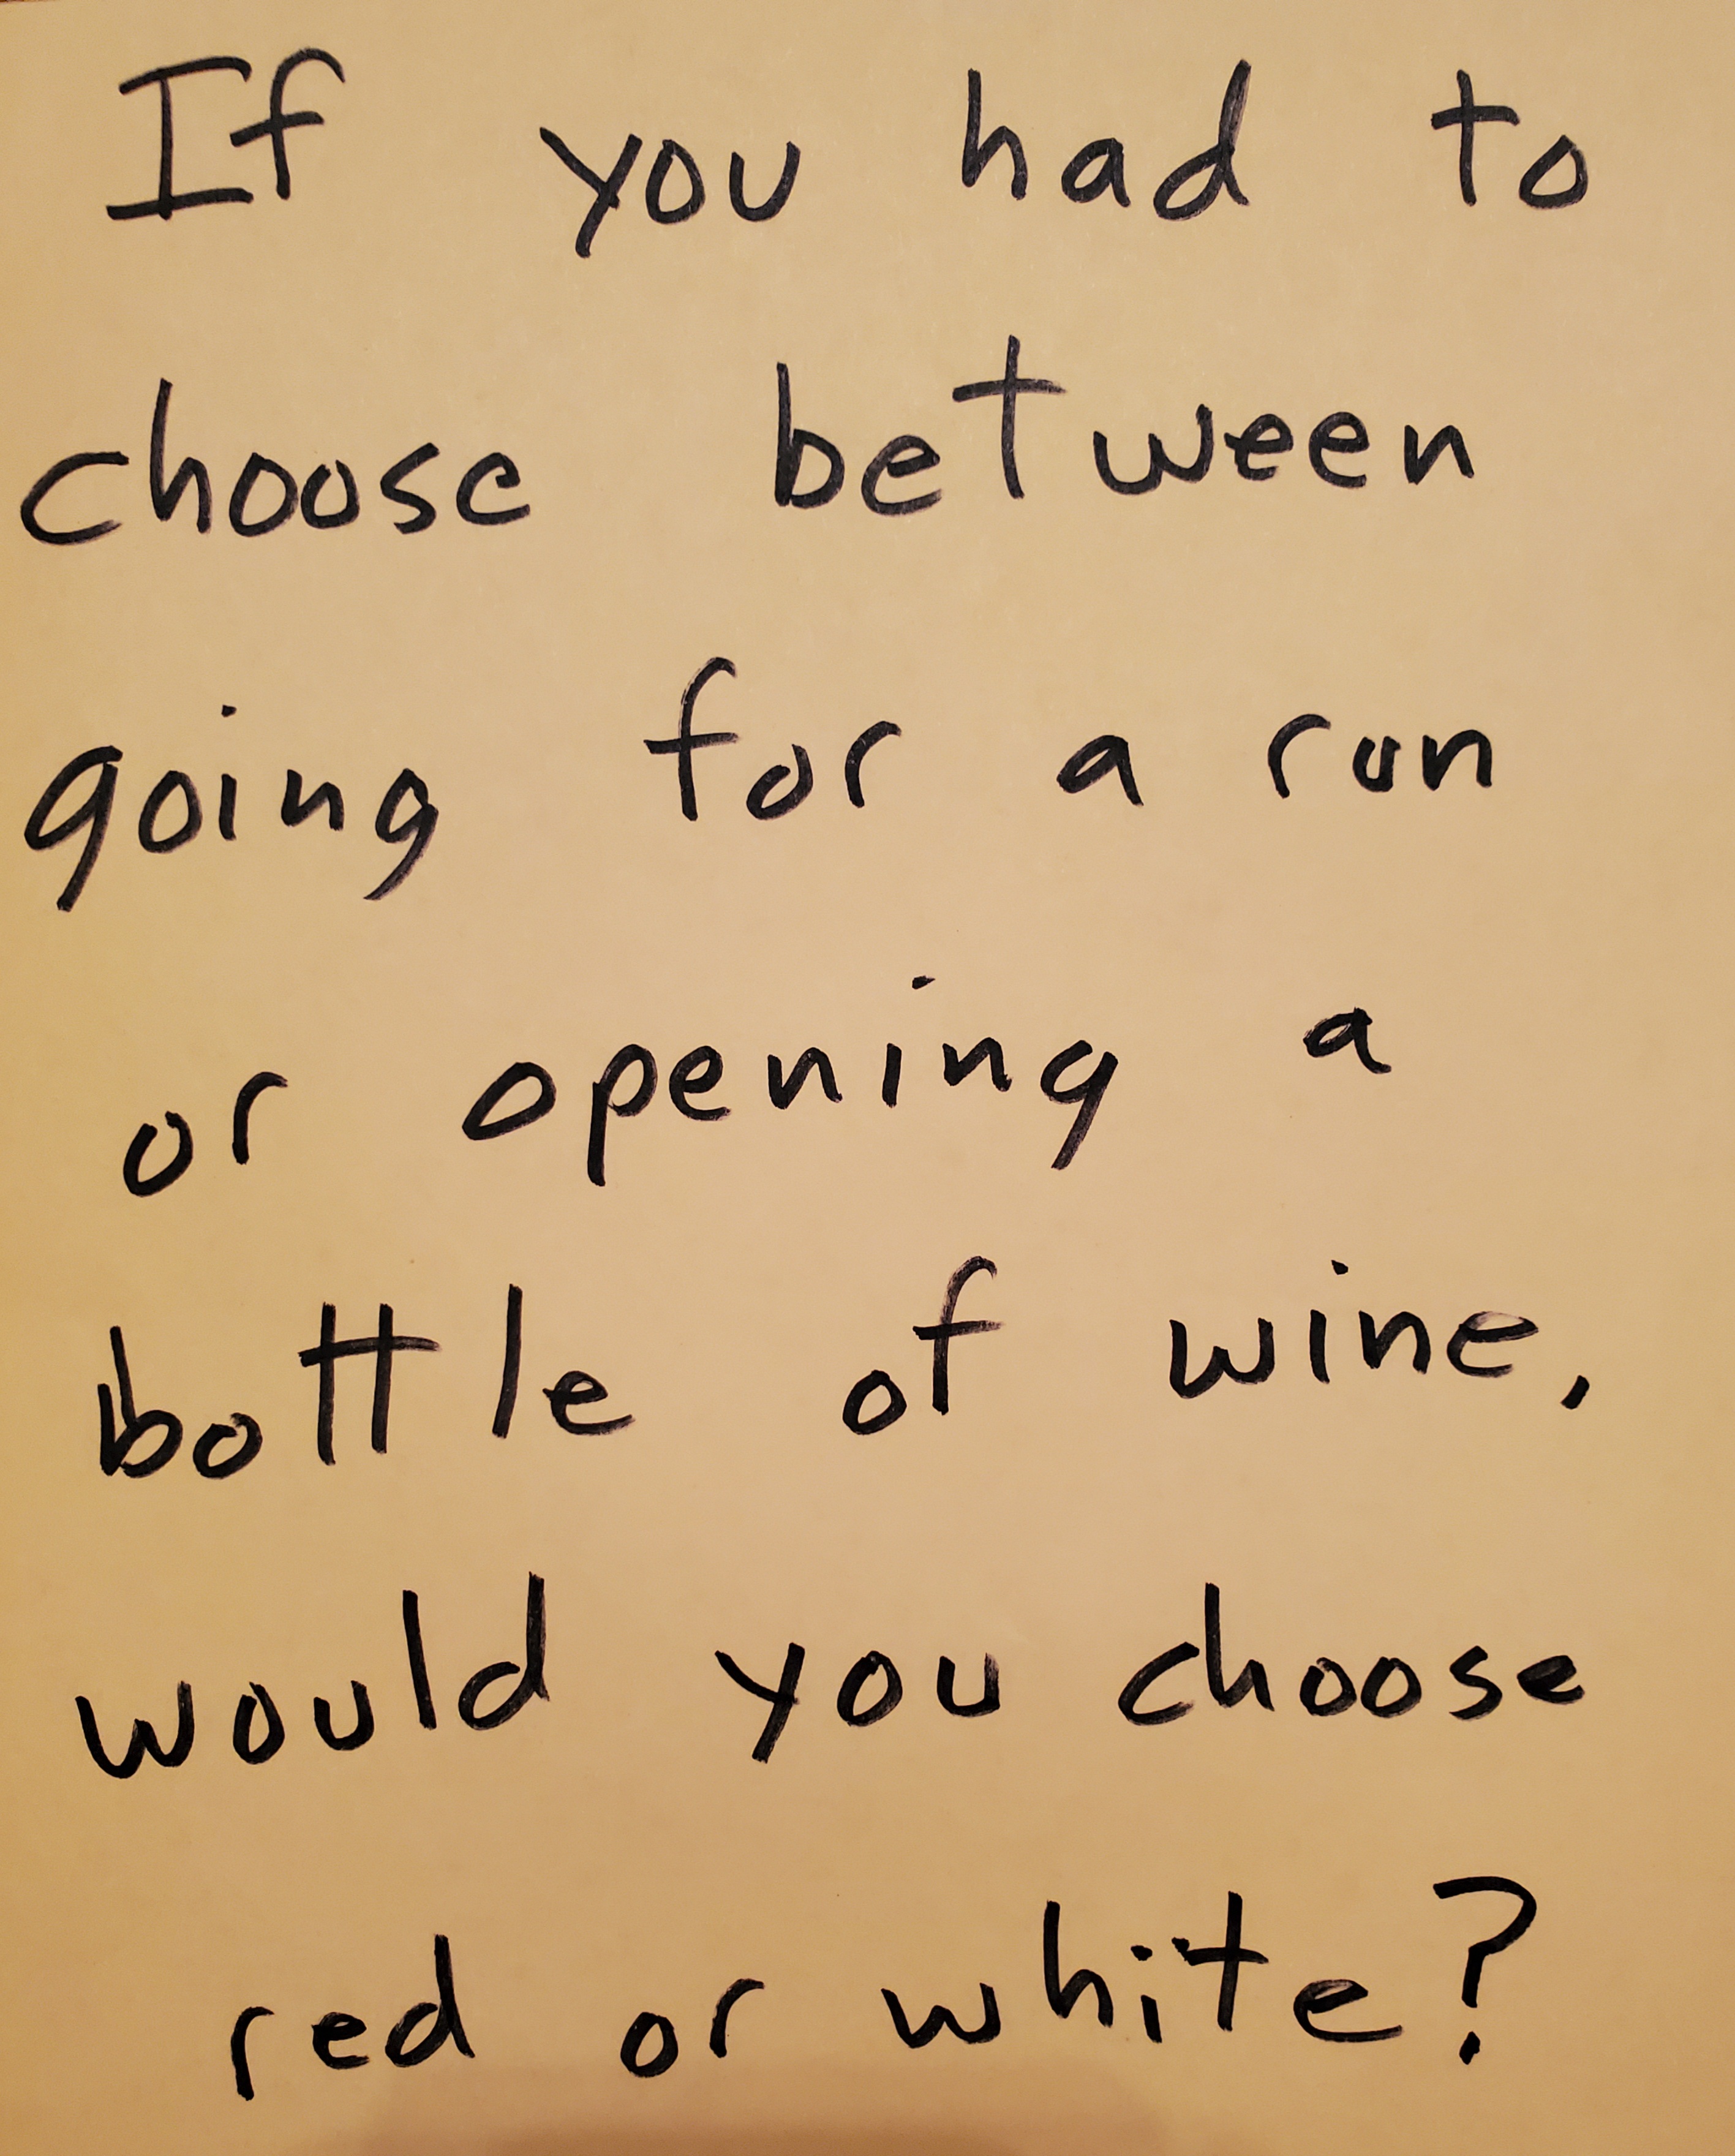 If you had to
choose between
going for a run
or opening a
bottle of wine,
would you choose
red or white?